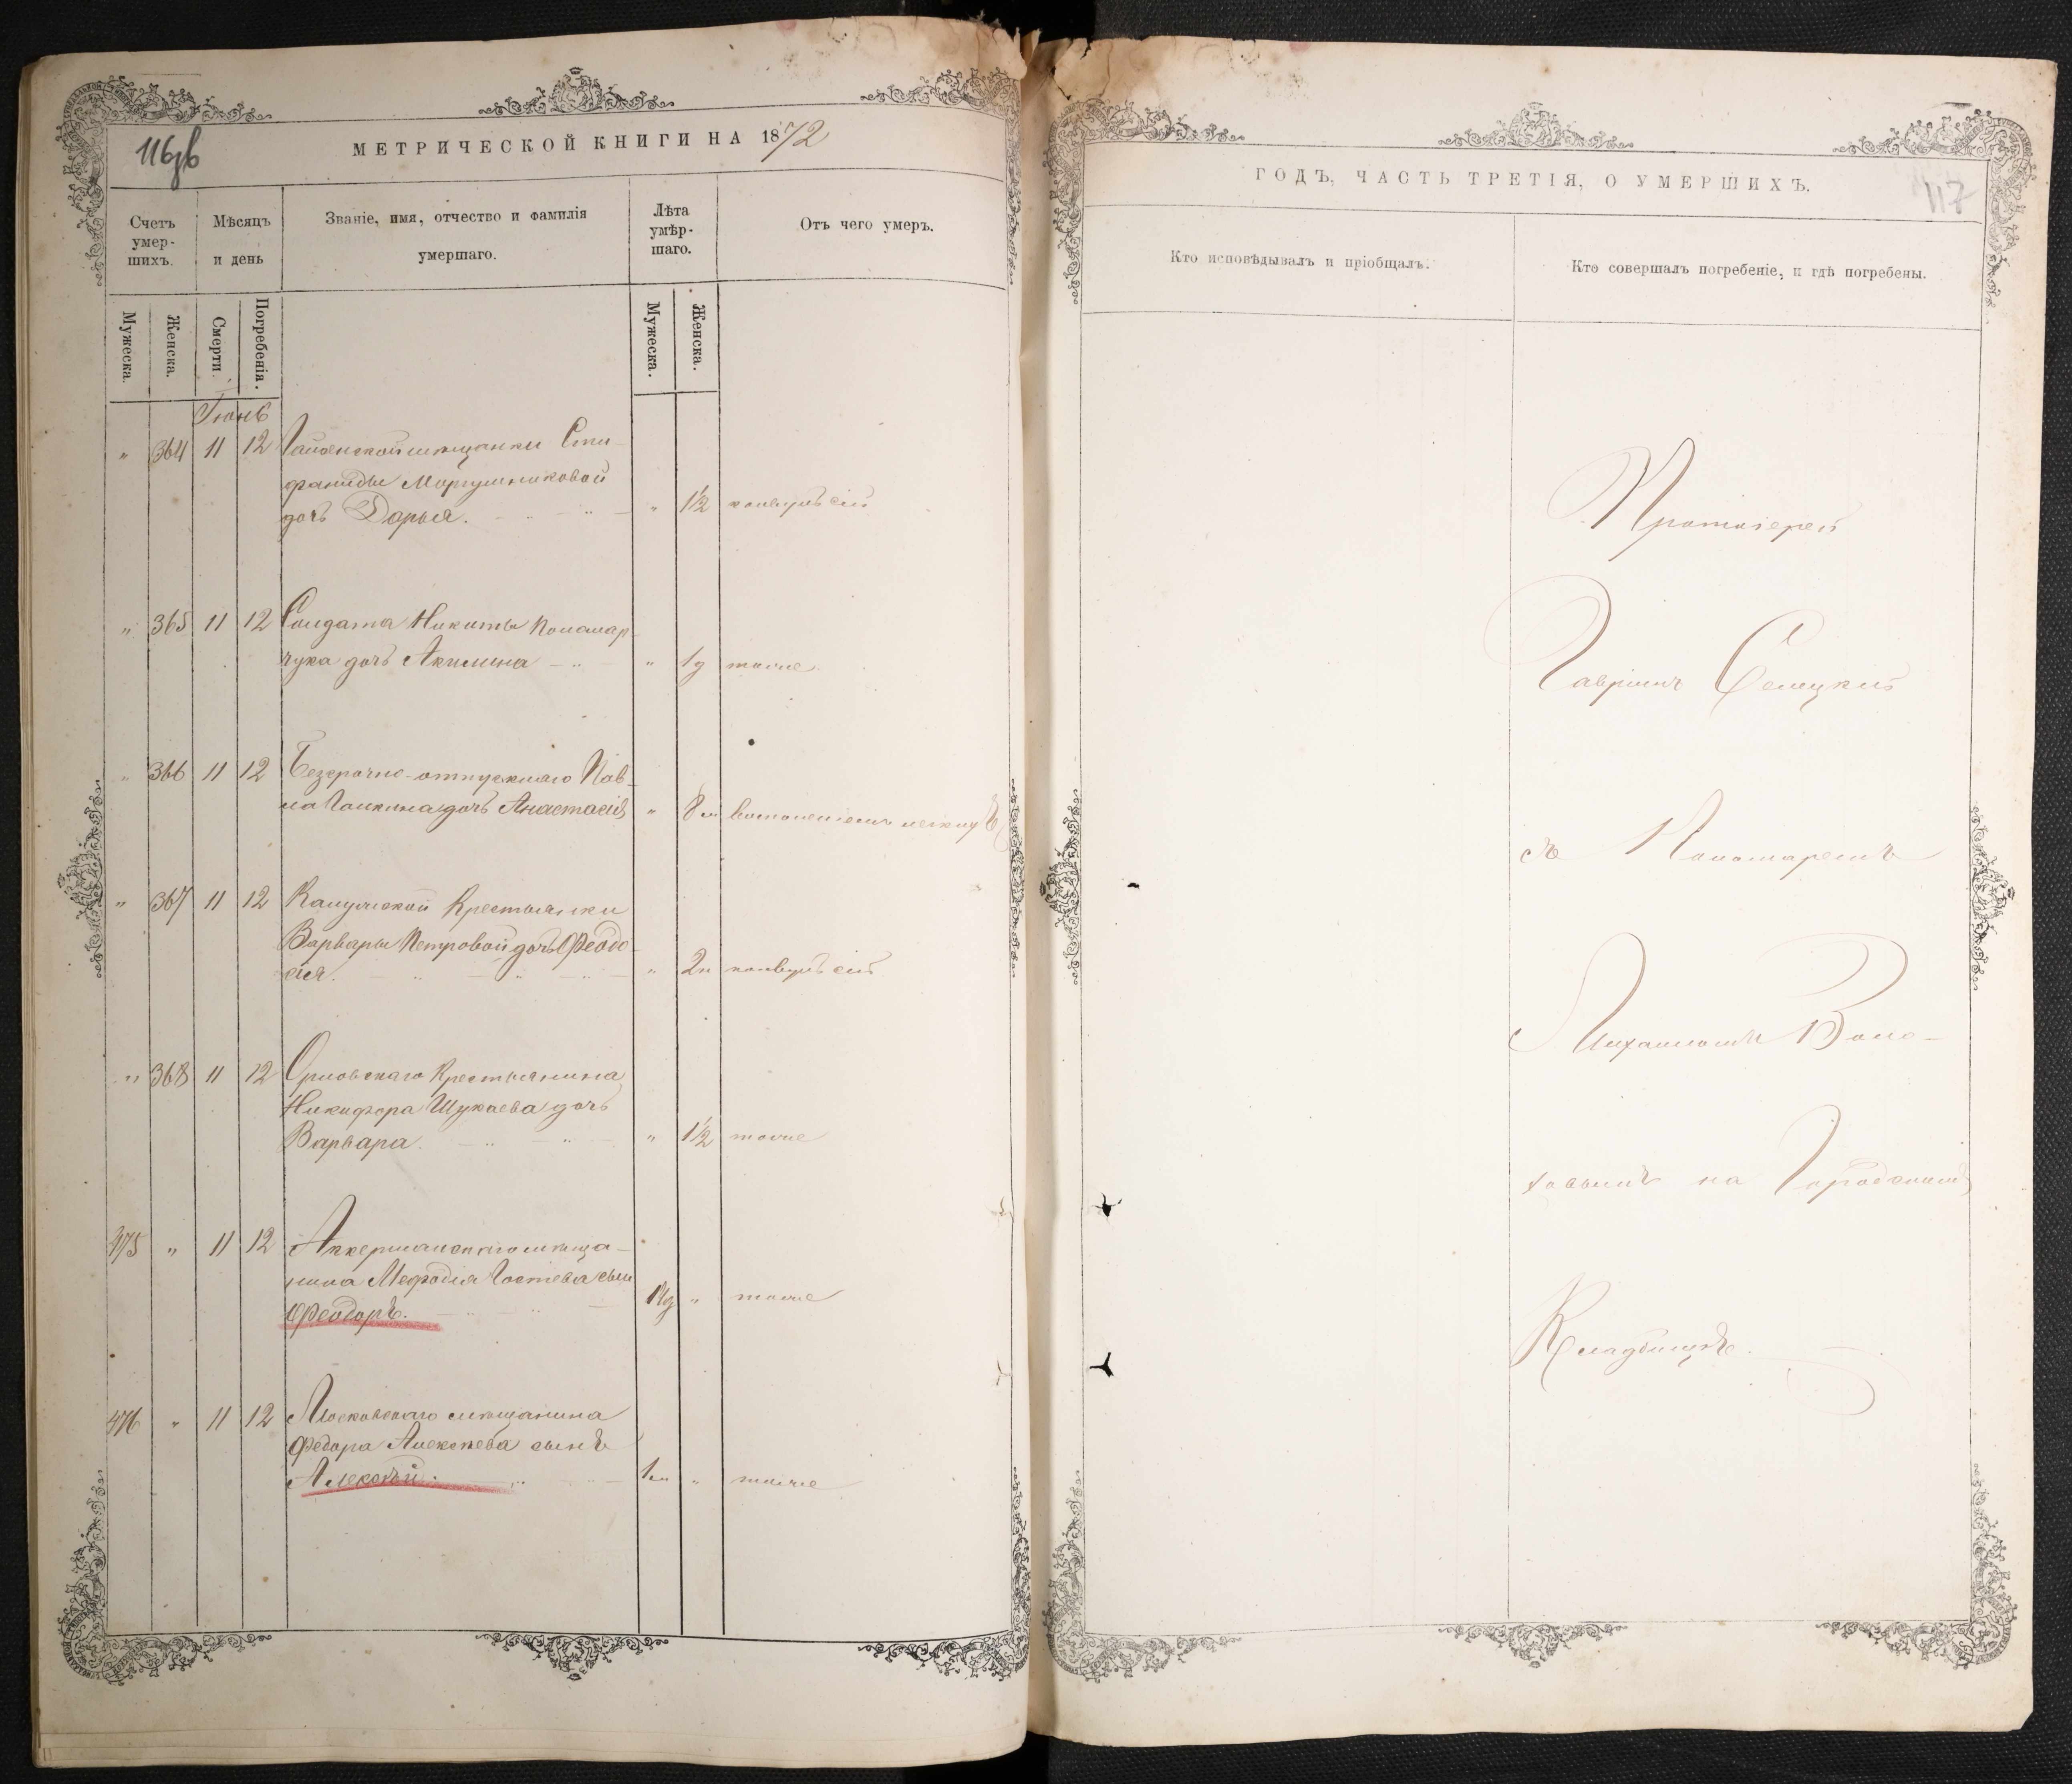 116 зв
МЕТРИЧЕСКОЙ КНИГИ НА 1872
Счетъ умер-шихъ.
Мѣсяцъ и день
Званіе, имя, отчество и фамилія умершаго.
Лѣта умѣр-шаго.
Отъ чего умеръ.
Мужеска.
Женска.
Смерти.
Погребенія.
Мужеска.
Женска.
Іюнь
" 364 11 12 мѣщанки Сти-
фаниды
дочь Дарья. " 1½ конвульсій
" 365 11 12 Солдата Никиты Понамар-
чука дочь Акилина " 1 g тоже
" 366 11 12 Безсрочно-отпускнаго Пав-
ла Галкина дочь Анастасія " 8 м воспаленіемъ легкихъ
" 367 11 12 Калужской Крестьянки
Варвары Петровой дочь Ѳеодо-
сія. " 2 н конвульсій
" 368 11 12 Орловскаго Крестьянина
Никифора Шукаева дочь
Варвара. " 1½ тоже
475 " 11 12 Аккерманскаго мѣща-
нина Меѳодія Гостева сын
Ѳеодоръ. " тоже
476 " 11 12 Московскаго мѣщанина
Федора Алексѣева сынъ
Алексѣй. 1 м " тоже
ГОДЪ, ЧАСТЬ ТРЕТІЯ, О УМЕРШИХЪ.
117
Кто исповѣдывалъ и пріобщалъ.
Кто совершалъ погребеніе, и гдѣ погребены.
Протоіерей
Гавріилъ Селецкій
съ Пономаремъ
Михаиломъ Воло-
ховымъ на Городскомъ
Кладбищѣ.